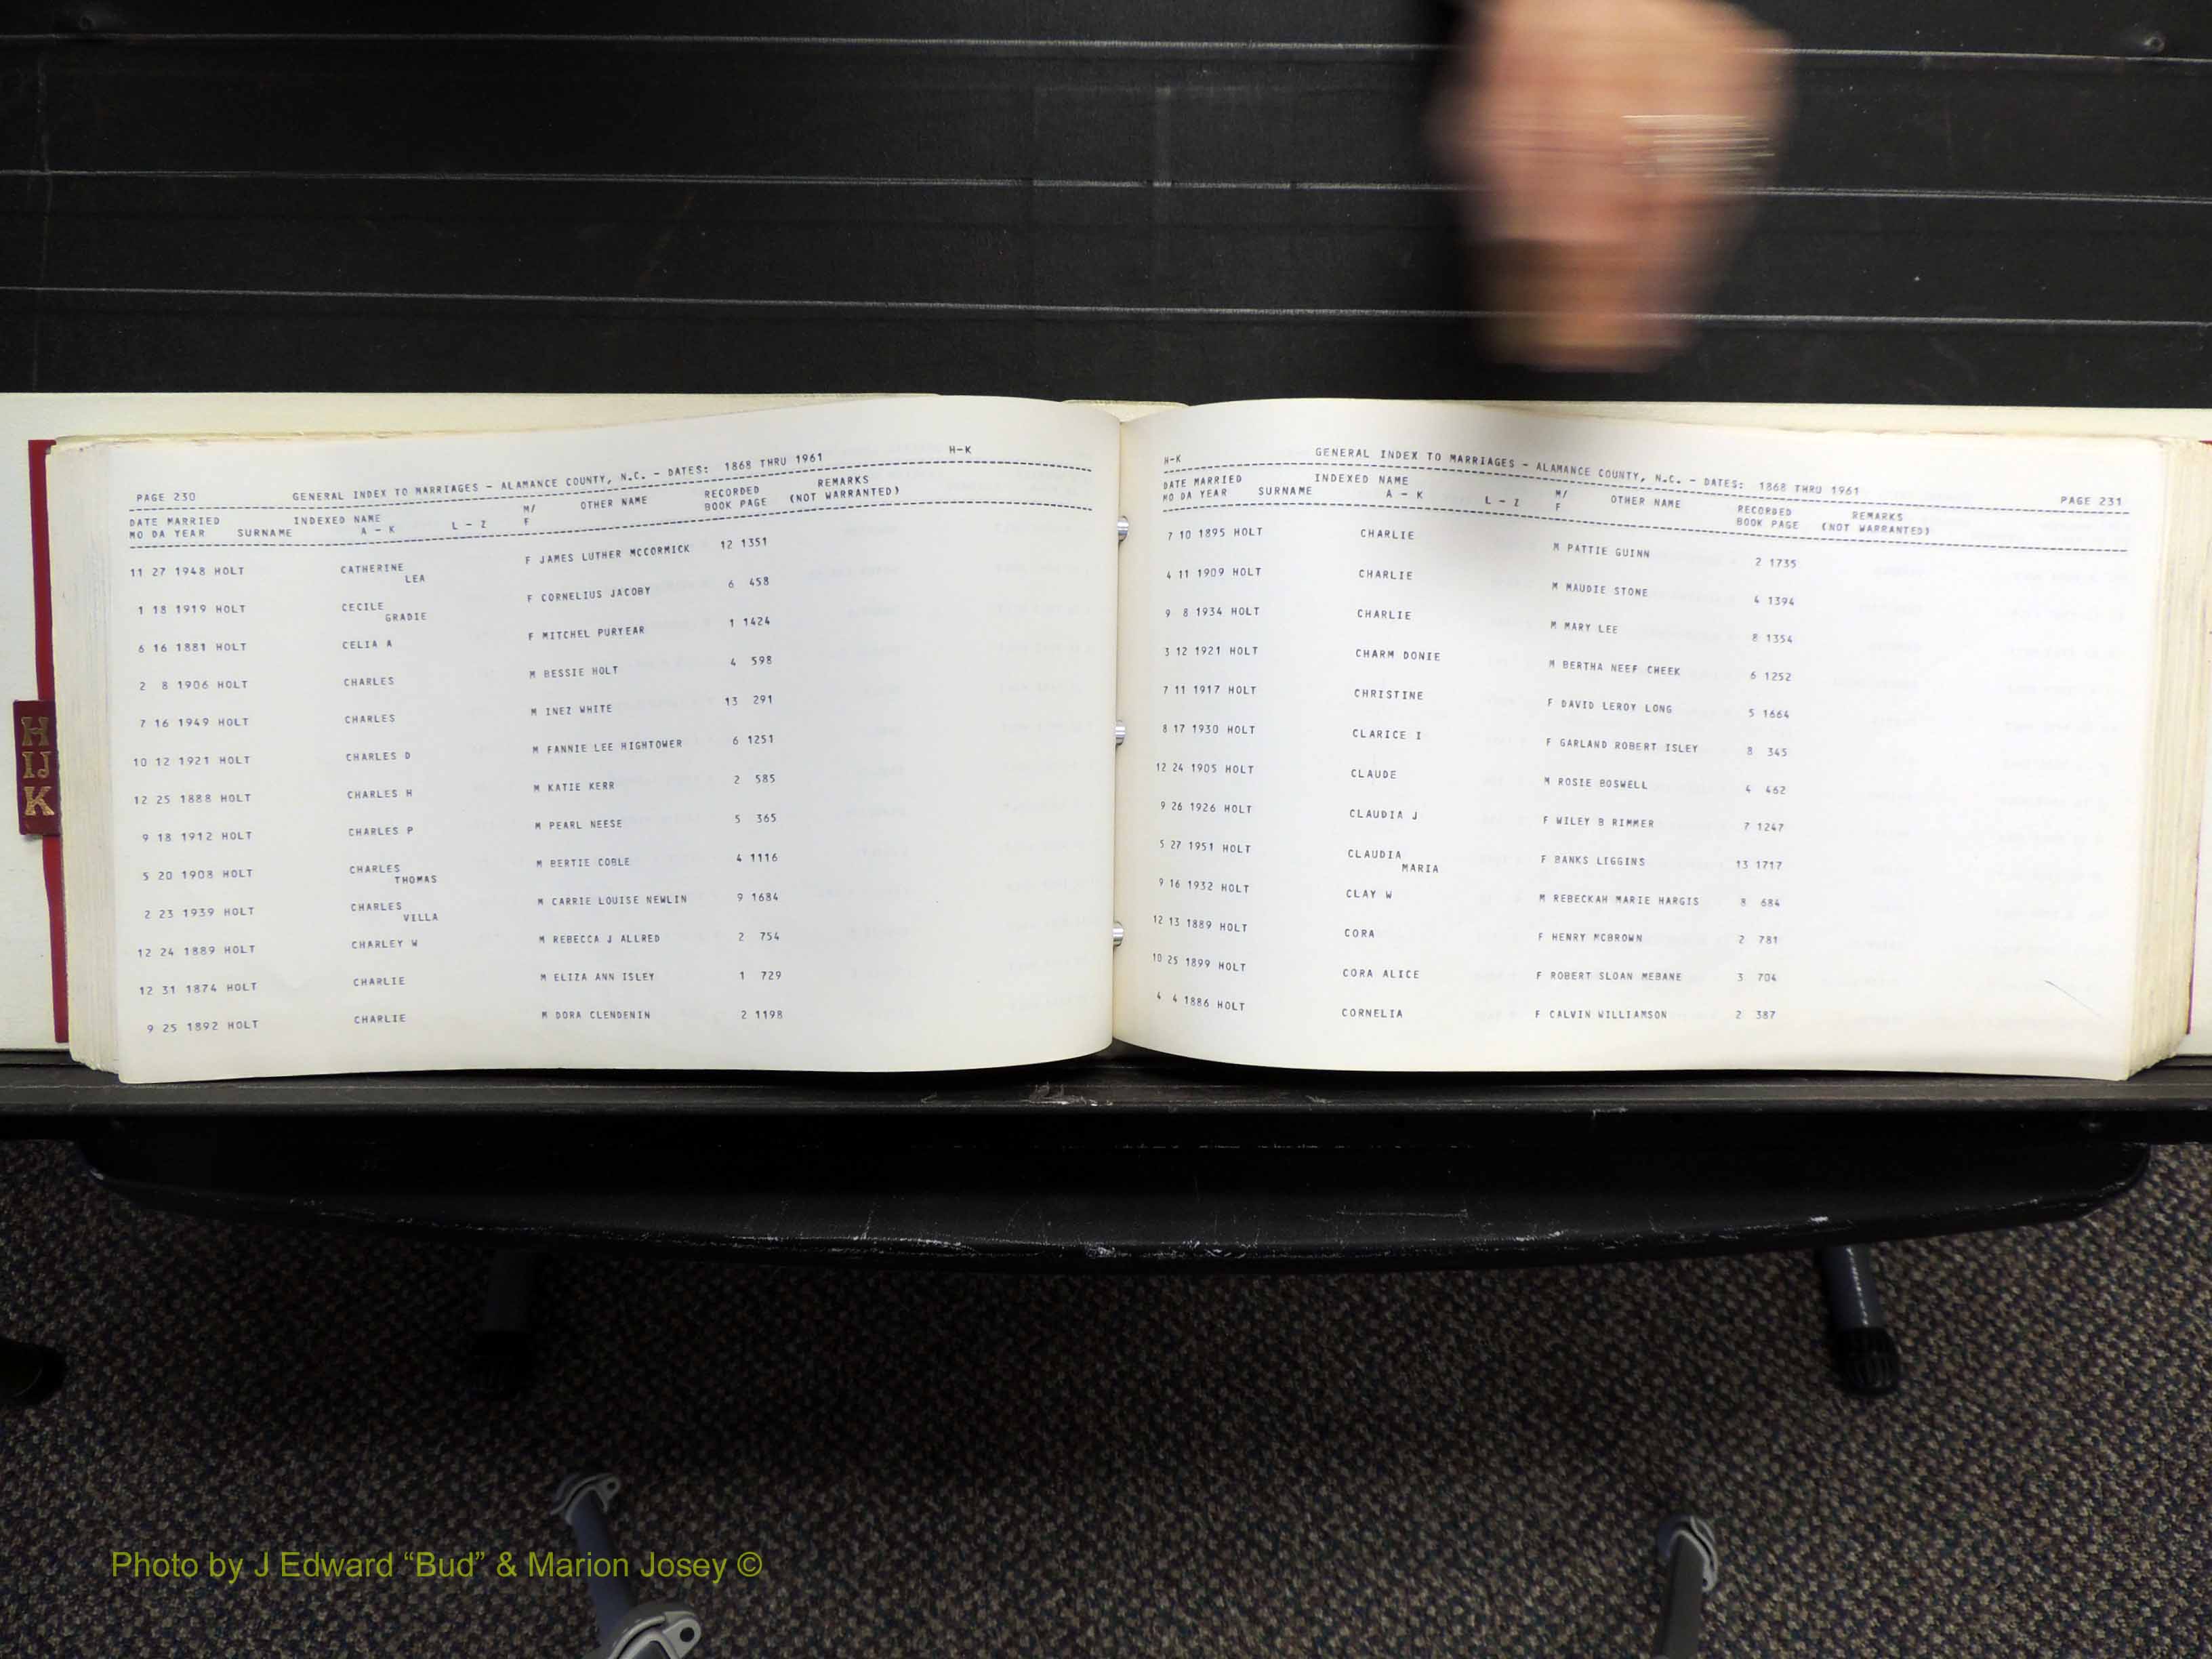 PAGE 230 GENERAL INDEX TO MARRIAGES - ALAMANCE COUNTY, N.C. - DATES: 1868 THRU 1961 H-K
DATE MARRIED INDEXED NAME M/ OTHER NAME RECORDED REMARKS
MO DA YEAR SURNAME A - K L - Z F BOOK PAGE (NOT WARRANTED)
11 27 1948 HOLT CATHERINE F JAMES LUTHER MCCORMICK 12 1351
LEA
1 18 1919 HOLT CECILE F CORNELIUS JACOBY 6 458
GRADIE
6 16 1881 HOLT CELIA A F MITCHEL PURYEAR 1 1424
2 8 1906 HOLT CHARLES M BESSIE HOLT 4 598
7 16 1949 HOLT CHARLES M INEZ WHITE 13 291
10 12 1921 HOLT CHARLES D M FANNIE LEE HIGHTOWER 6 1251
12 25 1888 HOLT CHARLES H M KATIE KERR 2 585
9 18 1912 HOLT CHARLES P M PEARL NEESE 5 365
5 20 1908 HOLT CHARLES M BERTIE COBLE 4 1116
THOMAS
2 23 1939 HOLT CHARLES M CARRIE LOUISE NEWLIN 9 1684
VILLA
12 24 1889 HOLT CHARLEY W M REBECCA J ALLRED 2 754
12 31 1874 HOLT CHARLIE M ELIZA ANN ISLEY 1 729
9 25 1892 HOLT CHARLIE M DORA CLENDENIN 2 1198
H-K GENERAL INDEX TO MARRIAGES - ALAMANCE COUNTY, N.C. - DATES: 1868 THRU 1961 PAGE 231
DATE MARRIED INDEXED NAME M/ OTHER NAME RECORDED REMARKS
MO DA YEAR SURNAME A - K L - Z F BOOK PAGE (NOT WARRANTED)
7 10 1895 HOLT CHARLIE M PATTIE GUINN 2 1735
4 11 1909 HOLT CHARLIE M MAUDIE STONE 4 1394
9 8 1934 HOLT CHARLIE M MARY LEE 8 1354
3 12 1921 HOLT CHARM DONIE M BERTHA NEEF CHEEK 6 1252
7 11 1917 HOLT CHRISTINE F DAVID LEROY LONG 5 1664
8 17 1930 HOLT CLARICE I F GARLAND ROBERT ISLEY 8 345
12 24 1905 HOLT CLAUDE M ROSIE BOSWELL 4 462
9 26 1926 HOLT CLAUDIA J F WILEY B RIMMER 7 1247
5 27 1951 HOLT CLAUDIA F BANKS LIGGINS 13 1717
MARIA
9 16 1932 HOLT CLAY W M REBECKAH MARIE HARGIS 8 684
12 13 1889 HOLT CORA F HENRY MCBROWN 2 781
10 25 1899 HOLT CORA ALICE F ROBERT SLOAN MEBANE 3 704
4 4 1886 HOLT CORNELIA F CALVIN WILLIAMSON 2 387
H
IJ
K
Photo by J Edward “Bud” & Marion Josey ©